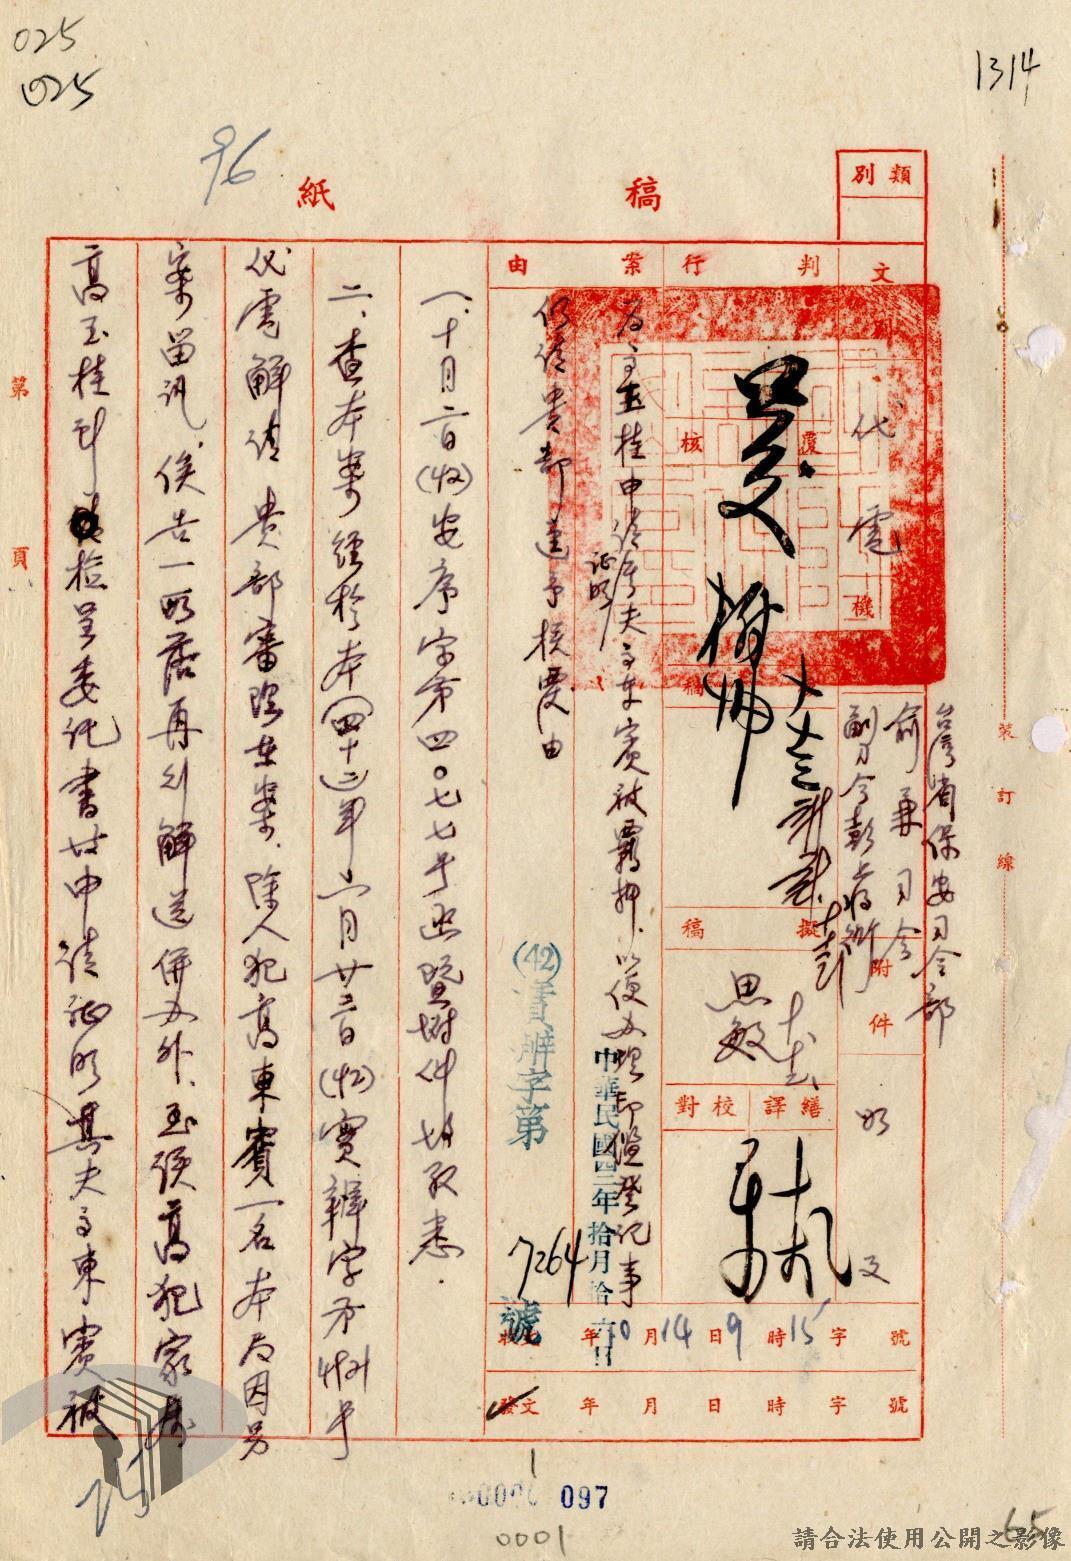 025
025
1314
96
稿紙
類別
文機
代電
台灣省保安司令部
俞兼司令
副司令彭
附件
如文
判行
覆核
核稿
擬稿
思敏
繕譯
校對
案由
為高玉桂申請証明其夫高東賓被羈押,以便办理印鑑登記事
仍請貴部逕予核覆由
中華民國四二年拾月拾六日
(42)實辦字第7264號
收文 年10月14日9時15字號
發文 年月日時字號
一、十月二日(42)安序字第四〇七七号函暨附件均敬悉.
二、查本案經於本(四十二)年 月廿三日(42)實辦字第 号
代電解請 貴部審辦在案.除人犯高東賓一名本局因另
案留訊,俟告一段落再行解送併办外.至該高犯家屬
高玉桂 檢呈委託書 申請証明其夫高東賓被
裝訂線
第頁
097
0001
65
請合法使用公開之影像